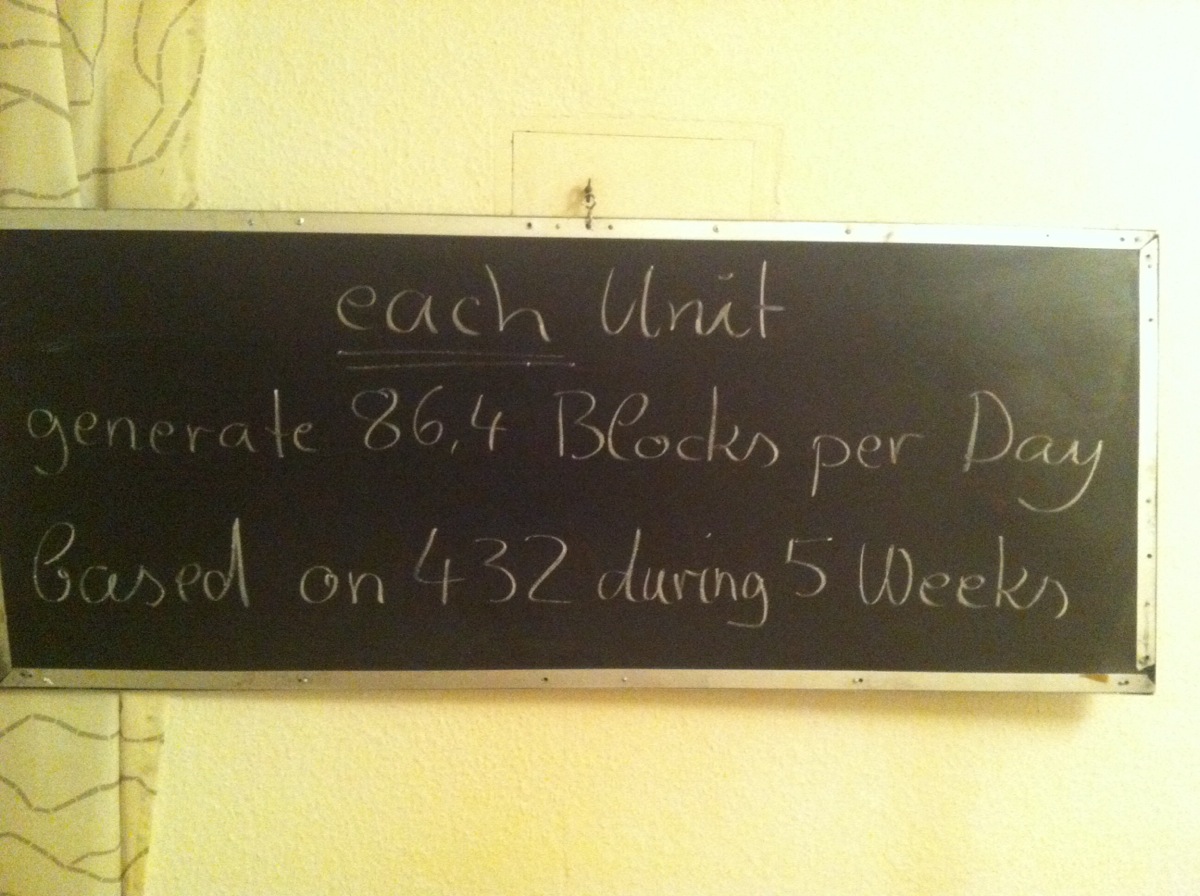 each Unit
generate 86,4 Blocks per Day
based on 432 during 5 Weeks